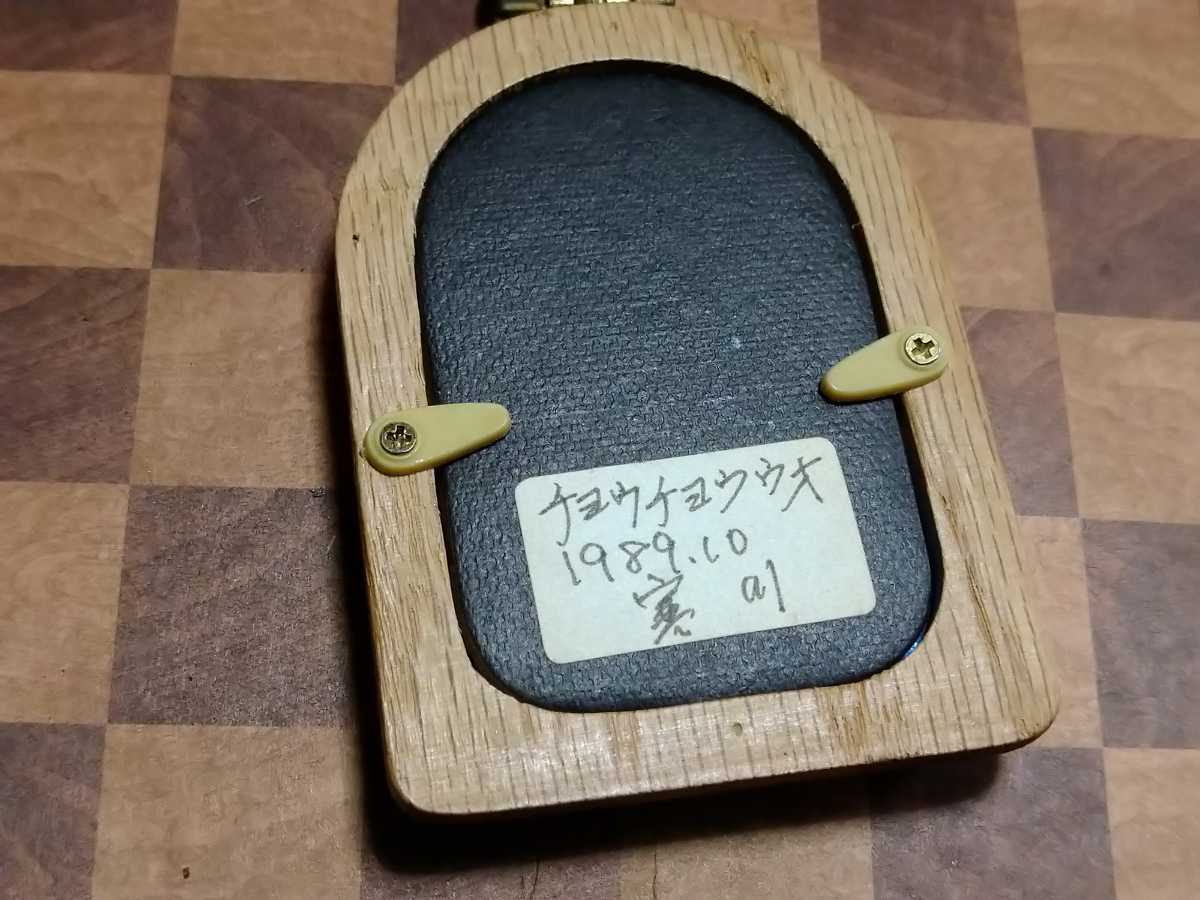 チョウチョウウオ
1989.10
寒川